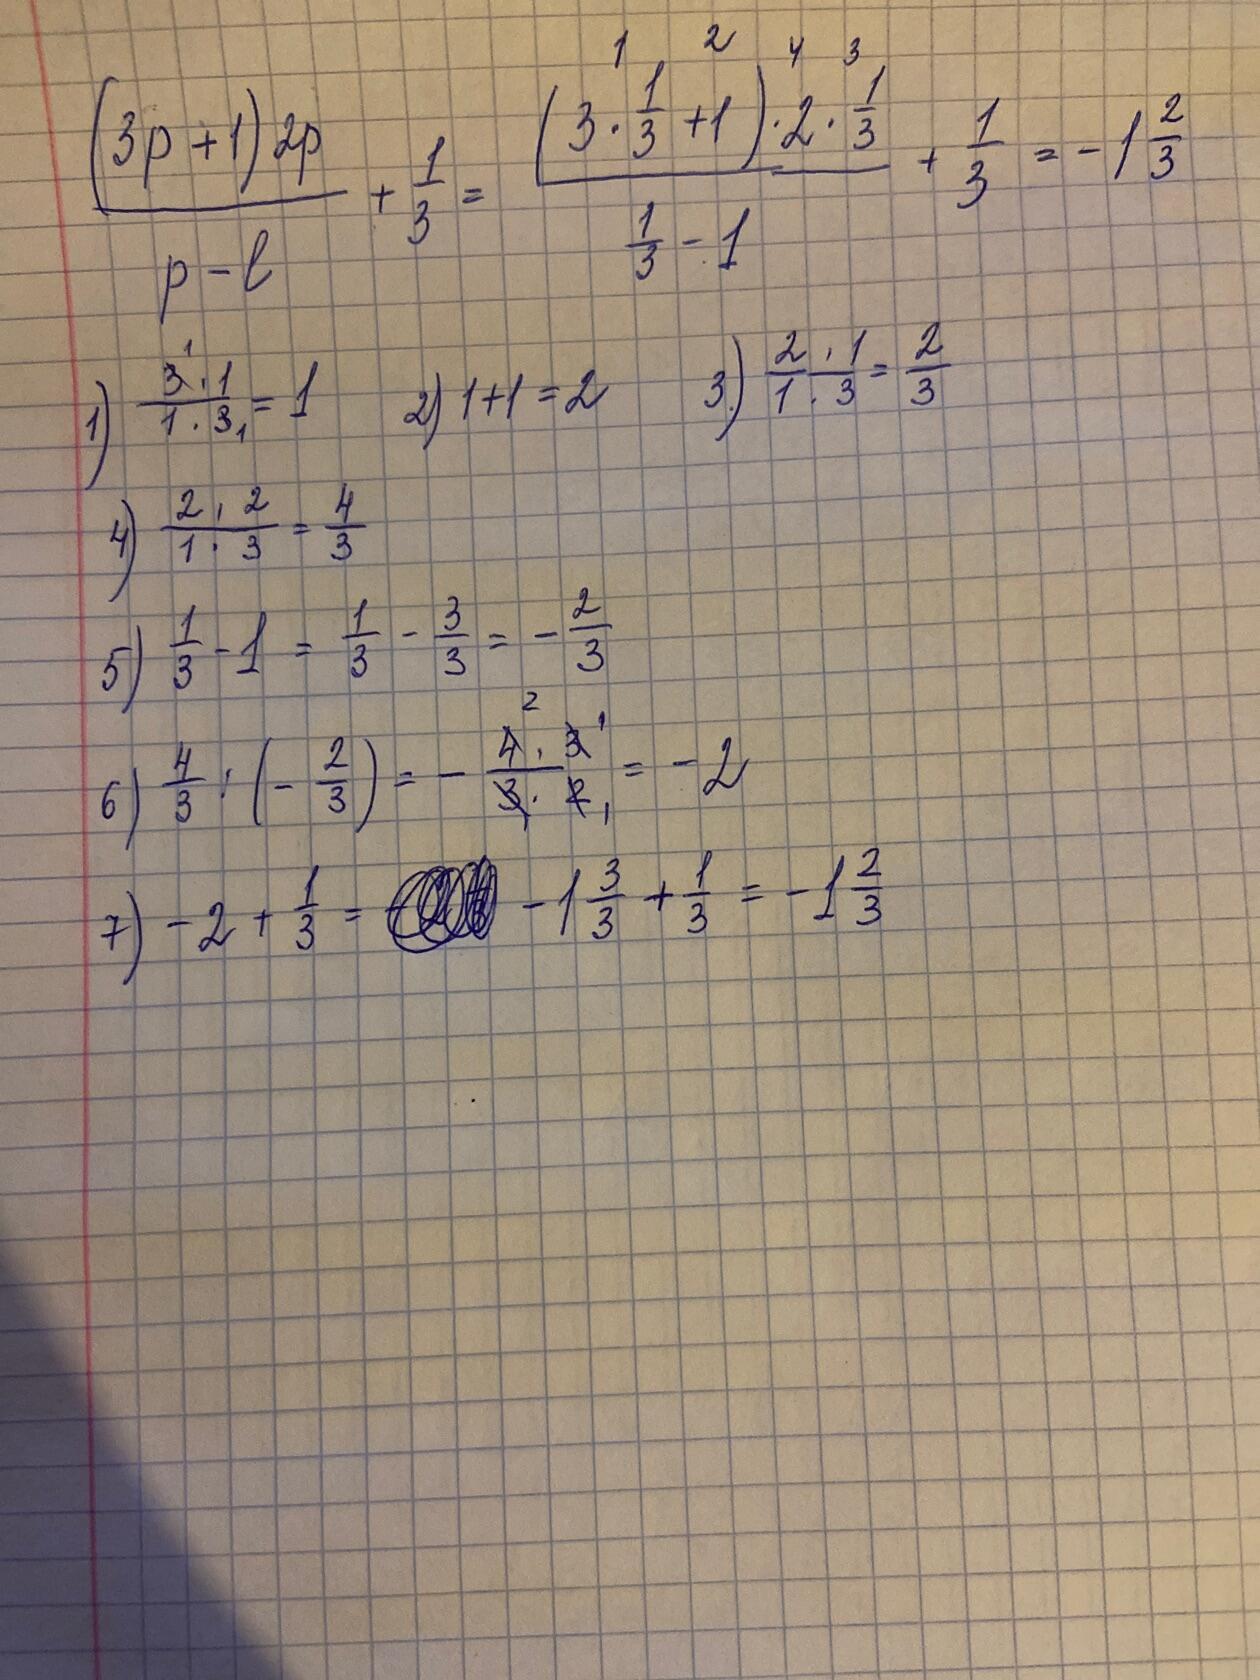 1 2 4 3
(3p+1)2p / p-l + 1/3 = (3·1/3+1)·2·1/3 / 1/3-1 + 1/3 = -1 2/3
1) 3·1/1·3 = 1 2) 1+1=2 3) 2·1/1·3 = 2/3
4) 2·2/1·3 = 4/3
5) 1/3-1 = 1/3 - 3/3 = -2/3
6) 4/3 : (-2/3) = - 4·3/3·2 = -2
7) -2 + 1/3 = -1 3/3 + 1/3 = -1 2/3